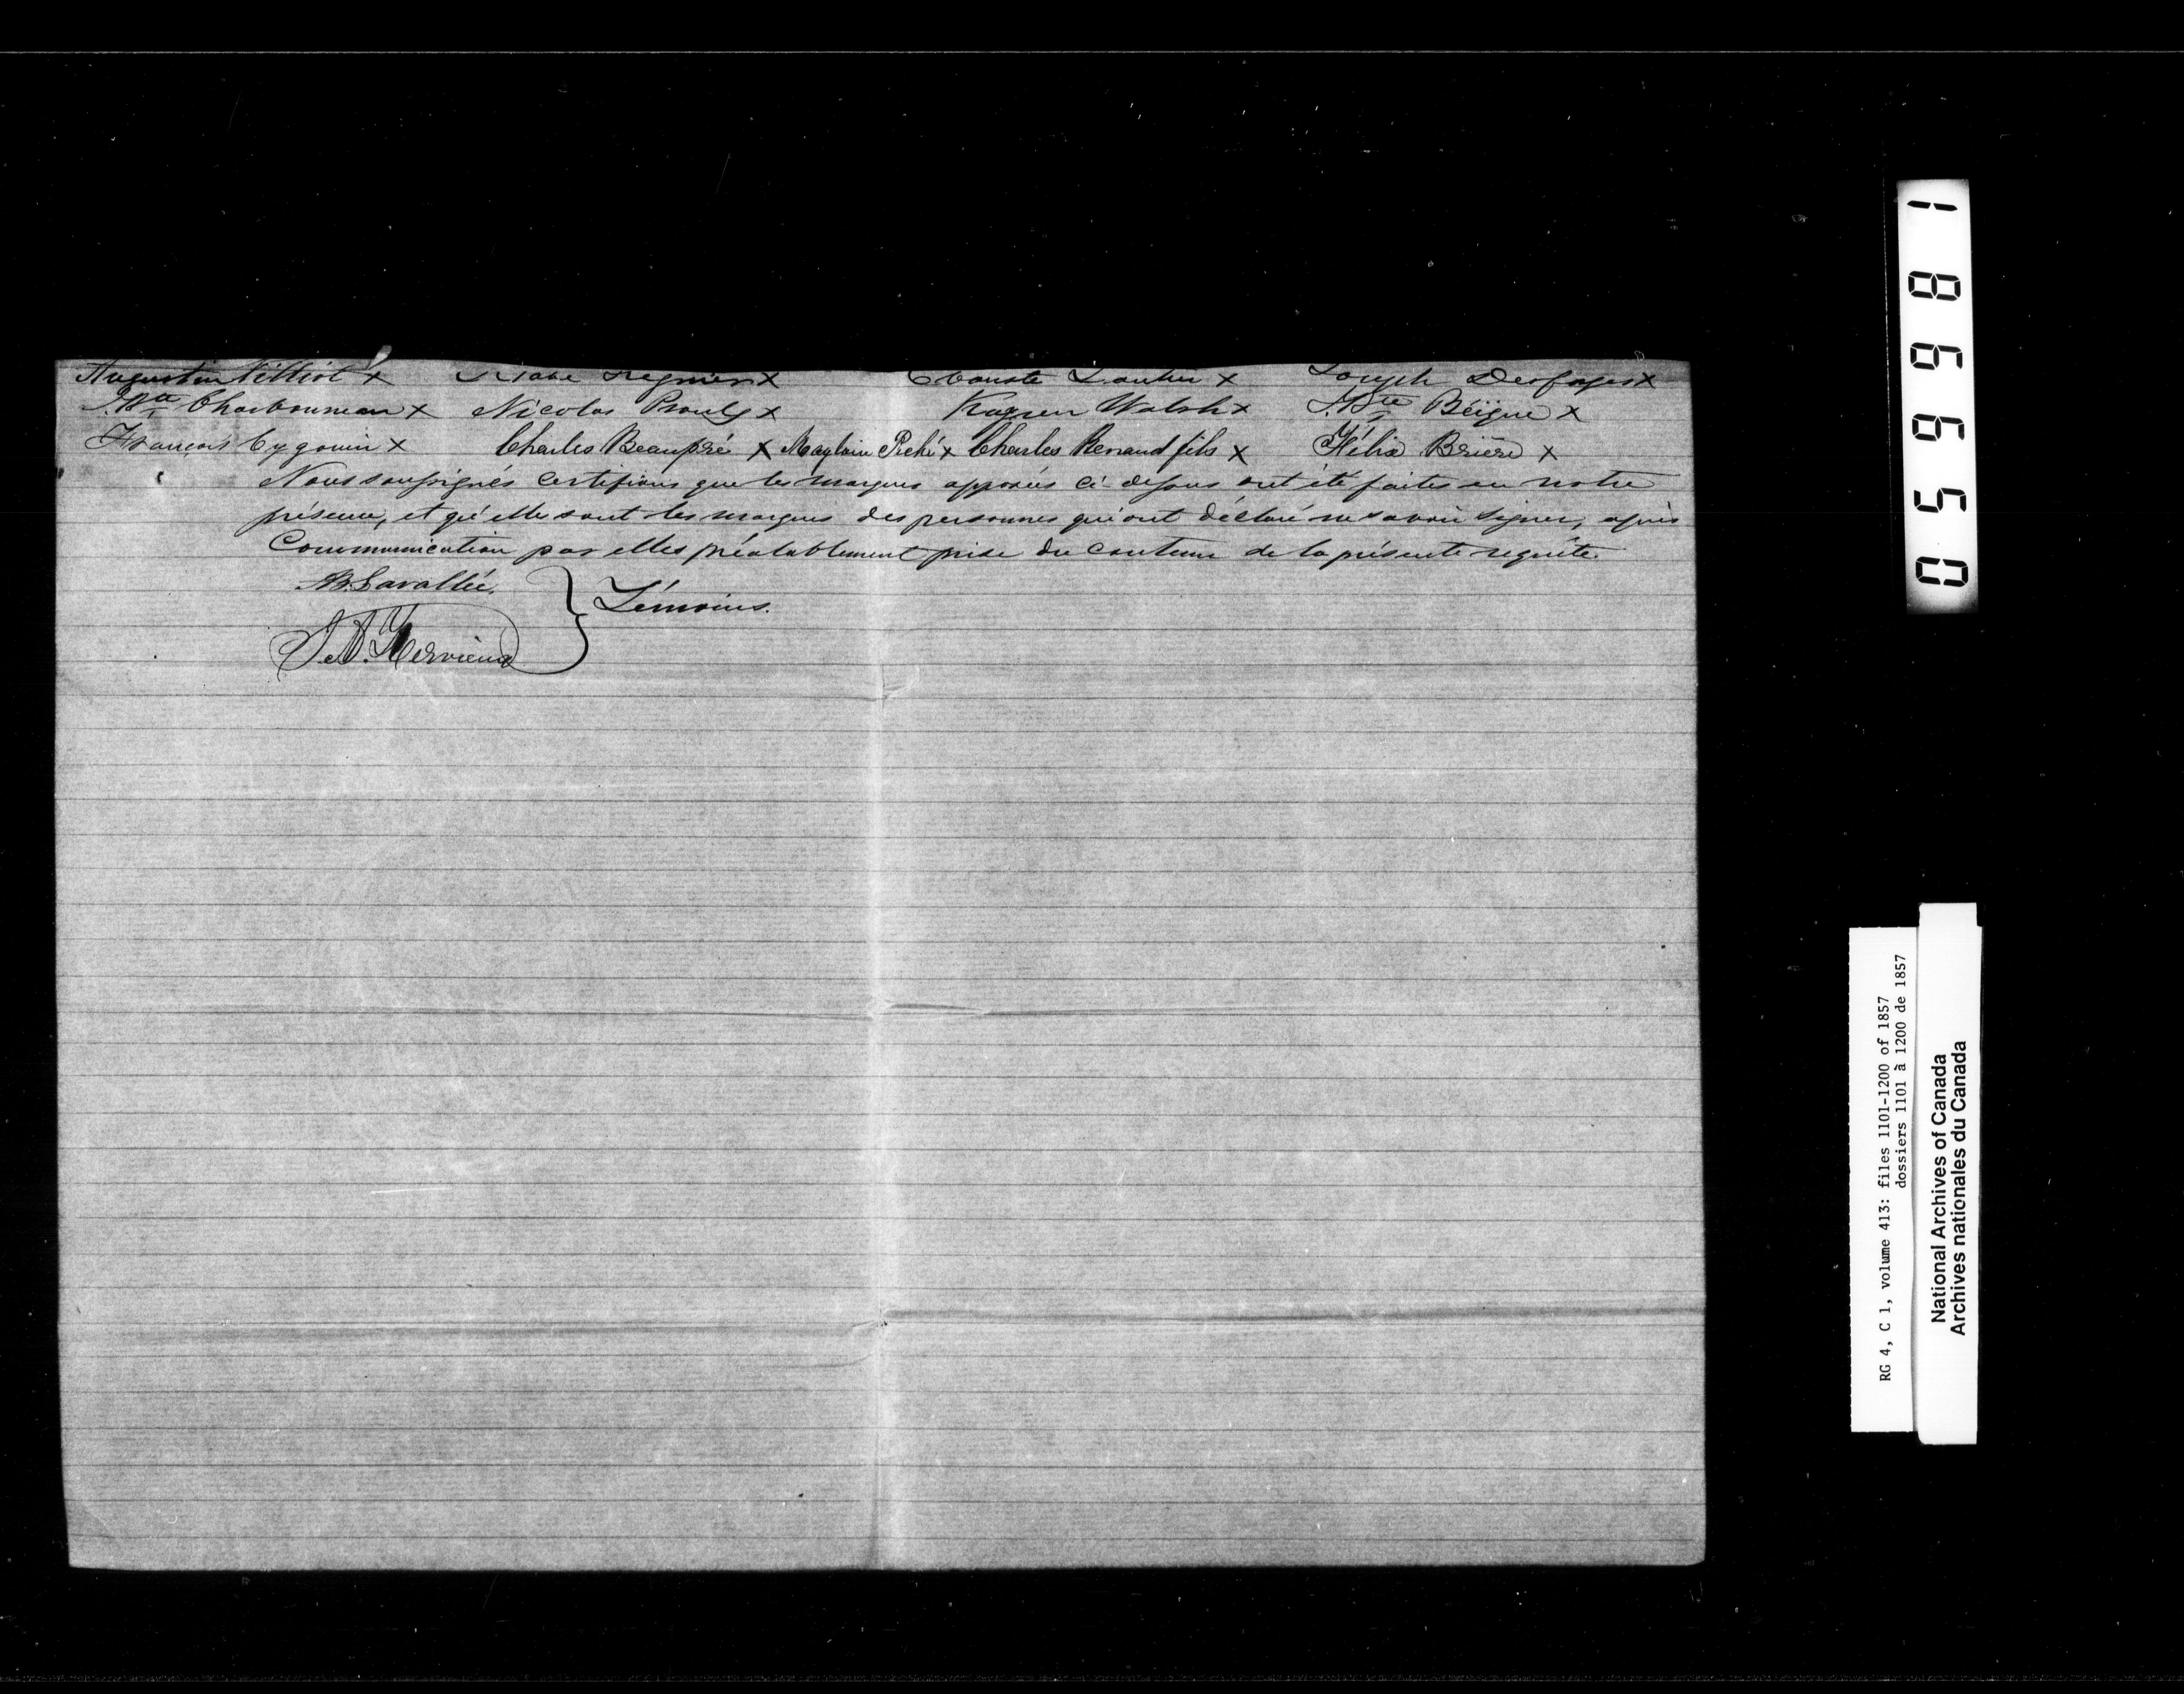 Augustin Filliol x Régnier x Joseph Desforges x
J. Bte Charbonneau x Nicolas Proulx x Walsh x J. Bte Béïque x
François Cygouin x Charles Beaupré x Piché x Charles Renaud fils x Félix Brière x
Nous soussignés certifions que les marques apposées ci-dessus ont été faites en notre
présence, et qu'elles sont les marques des personnes qui ont déclaré ne savoir signer, après
Communication par elles préalablement prise du contenu de la présente requête.
Lavallée. Témoins.
Hervieux
059981
RG 4, C 1, volume 413: files 1101-1200 of 1857
dossiers 1101 à 1200 de 1857
National Archives of Canada
Archives nationales du Canada